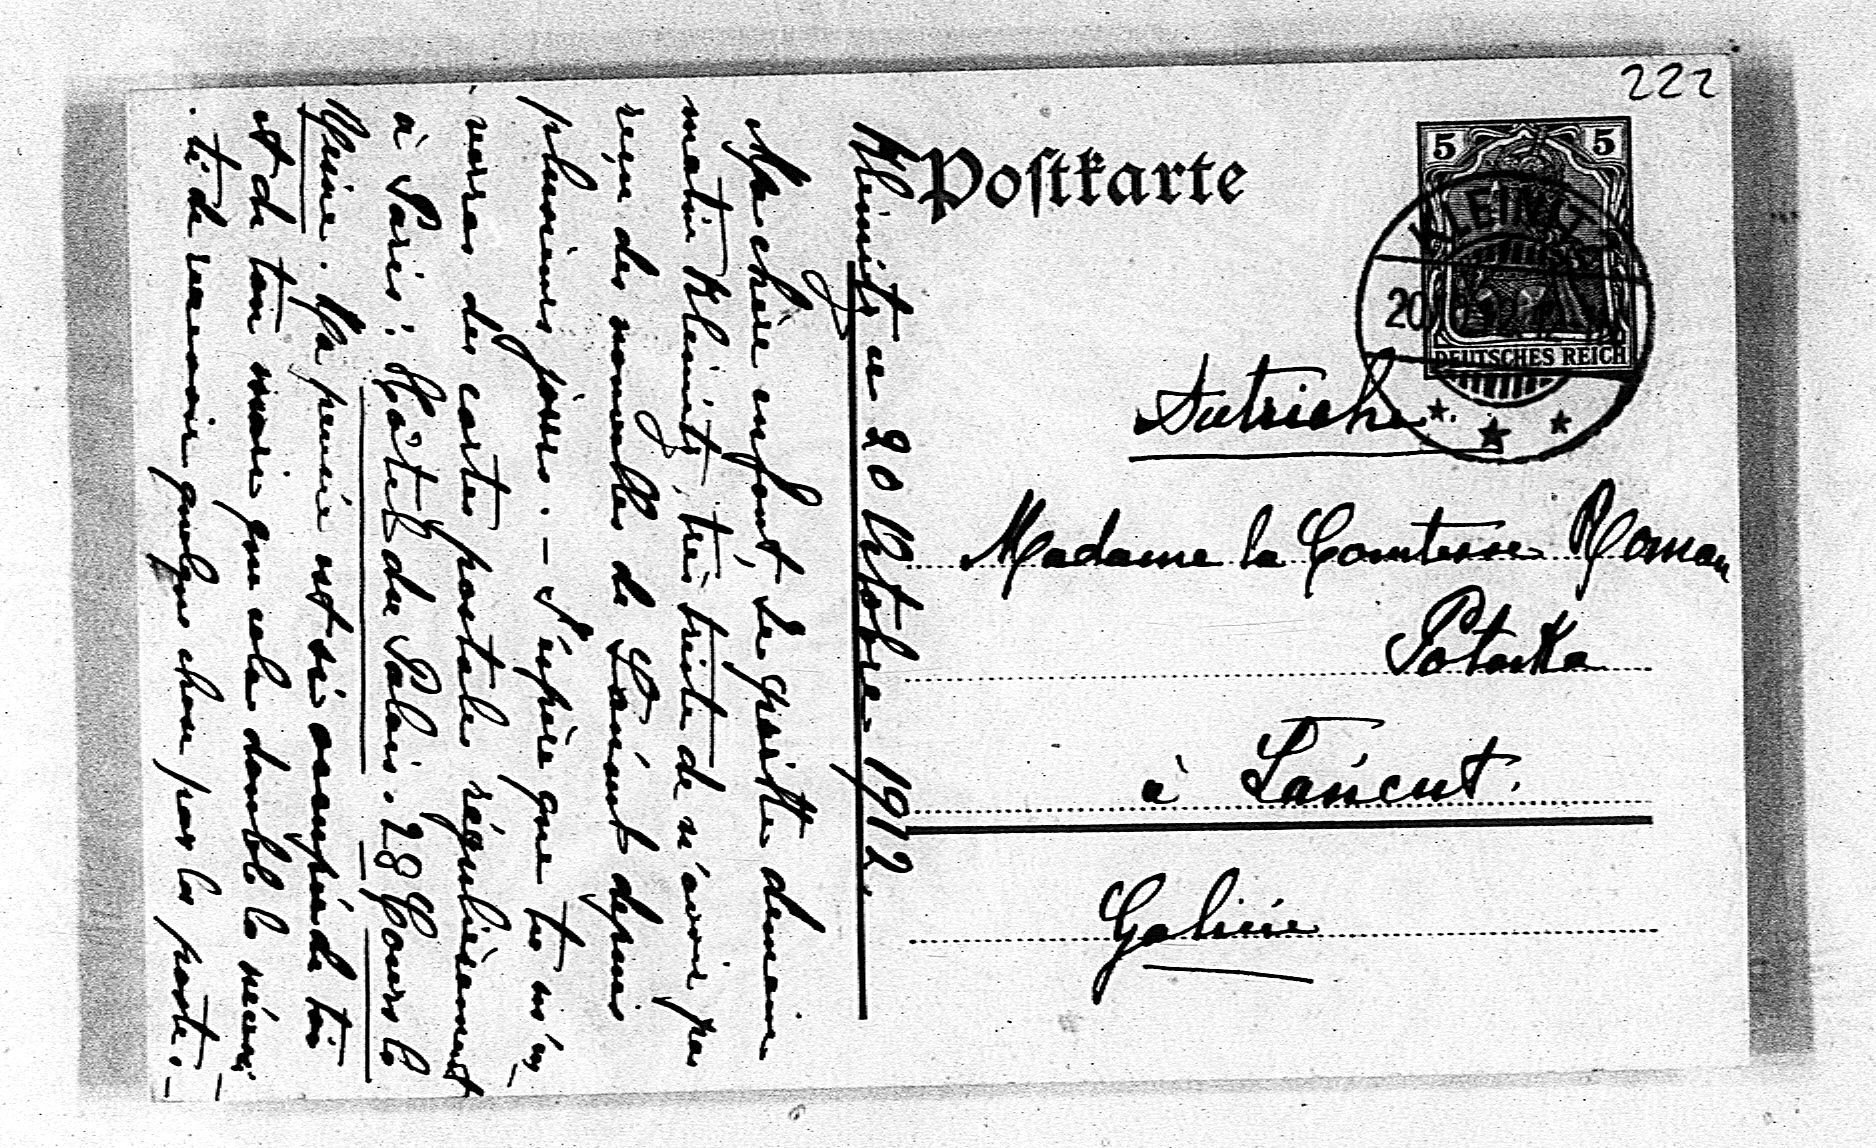 222
Postkarte
5 5
DEUTSCHES REICH
KLEINITZ
20
Autriche
Madame la Comtesse Roman
Potocka
à Łańcut.
Galicie
Kleinitz ce 20 Octobre 1912.
Ma chère enfant, Je quitte demain
matin Kleinitz, très triste de n'avoir pas
reçu des nouvelles de Łańcut depuis
plusieurs jours. — J'espère que tu m'en-
verras des cartes postales régulièrement
à Paris: Hôtel du Palais. 28 Cours la
Reine. Ma pensée est si occupée de toi
et de ton mari que cela double la nécessi-
té de recevoir quelque chose par la poste. —